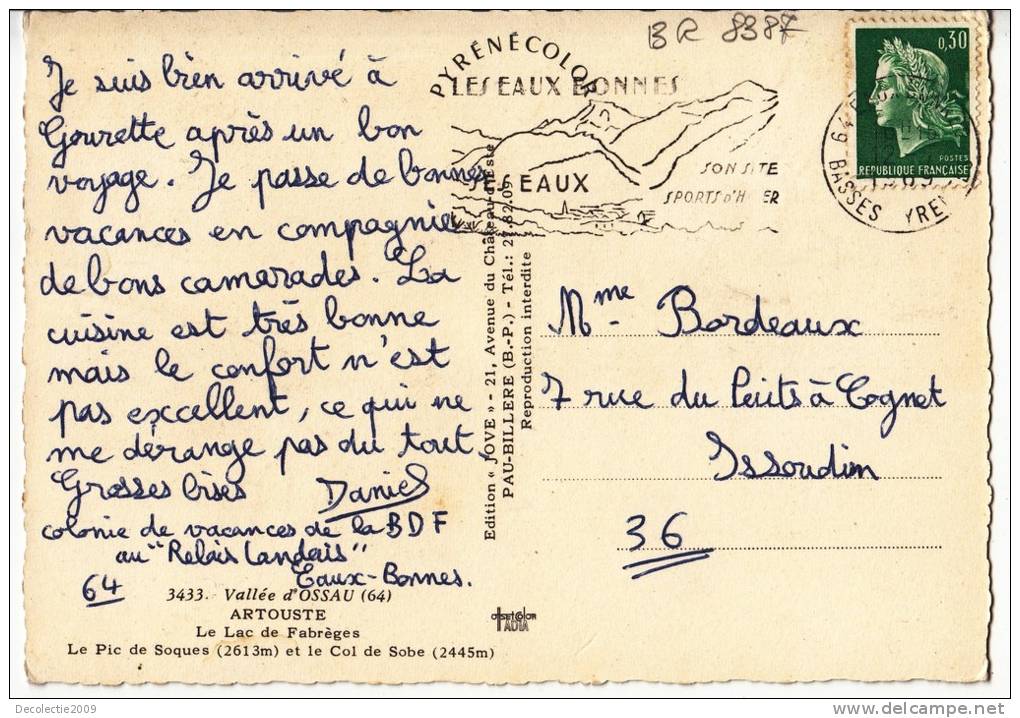 BR 8387
Je suis bien arrivé à
Gourette après un bon
voyage. Je passe de bonnes
vacances en compagnie
de bons camarades. La
cuisine est très bonne
mais le confort n'est
pas excellent, ce qui ne
me dérange pas du tout
Grosses bises Daniel
colonie de vacances de la BDF
au "Relais Landais"
Eaux-Bonnes.
64
3433. Vallée d'OSSAU (64)
ARTOUSTE
Le Lac de Fabrèges
Le Pic de Soques (2613m) et le Col de Sobe (2445m)
PYRÉNÉCOLOR
LES EAUX BONNES
EAUX
SON SITE
SPORTS D'H ER
Edition « JOVE » - 21, Avenue du Château-d'Este
PAU-BILLERE (B.-P.) - Tél.: 27.82.09
Reproduction interdite
0,30
POSTES
REPUBLIQUE FRANÇAISE
BASSES YRE
Mme Bordeaux
7 rue du Puits à Cognet
Issoudun
36
Decolectie2009
www.delcampe.net